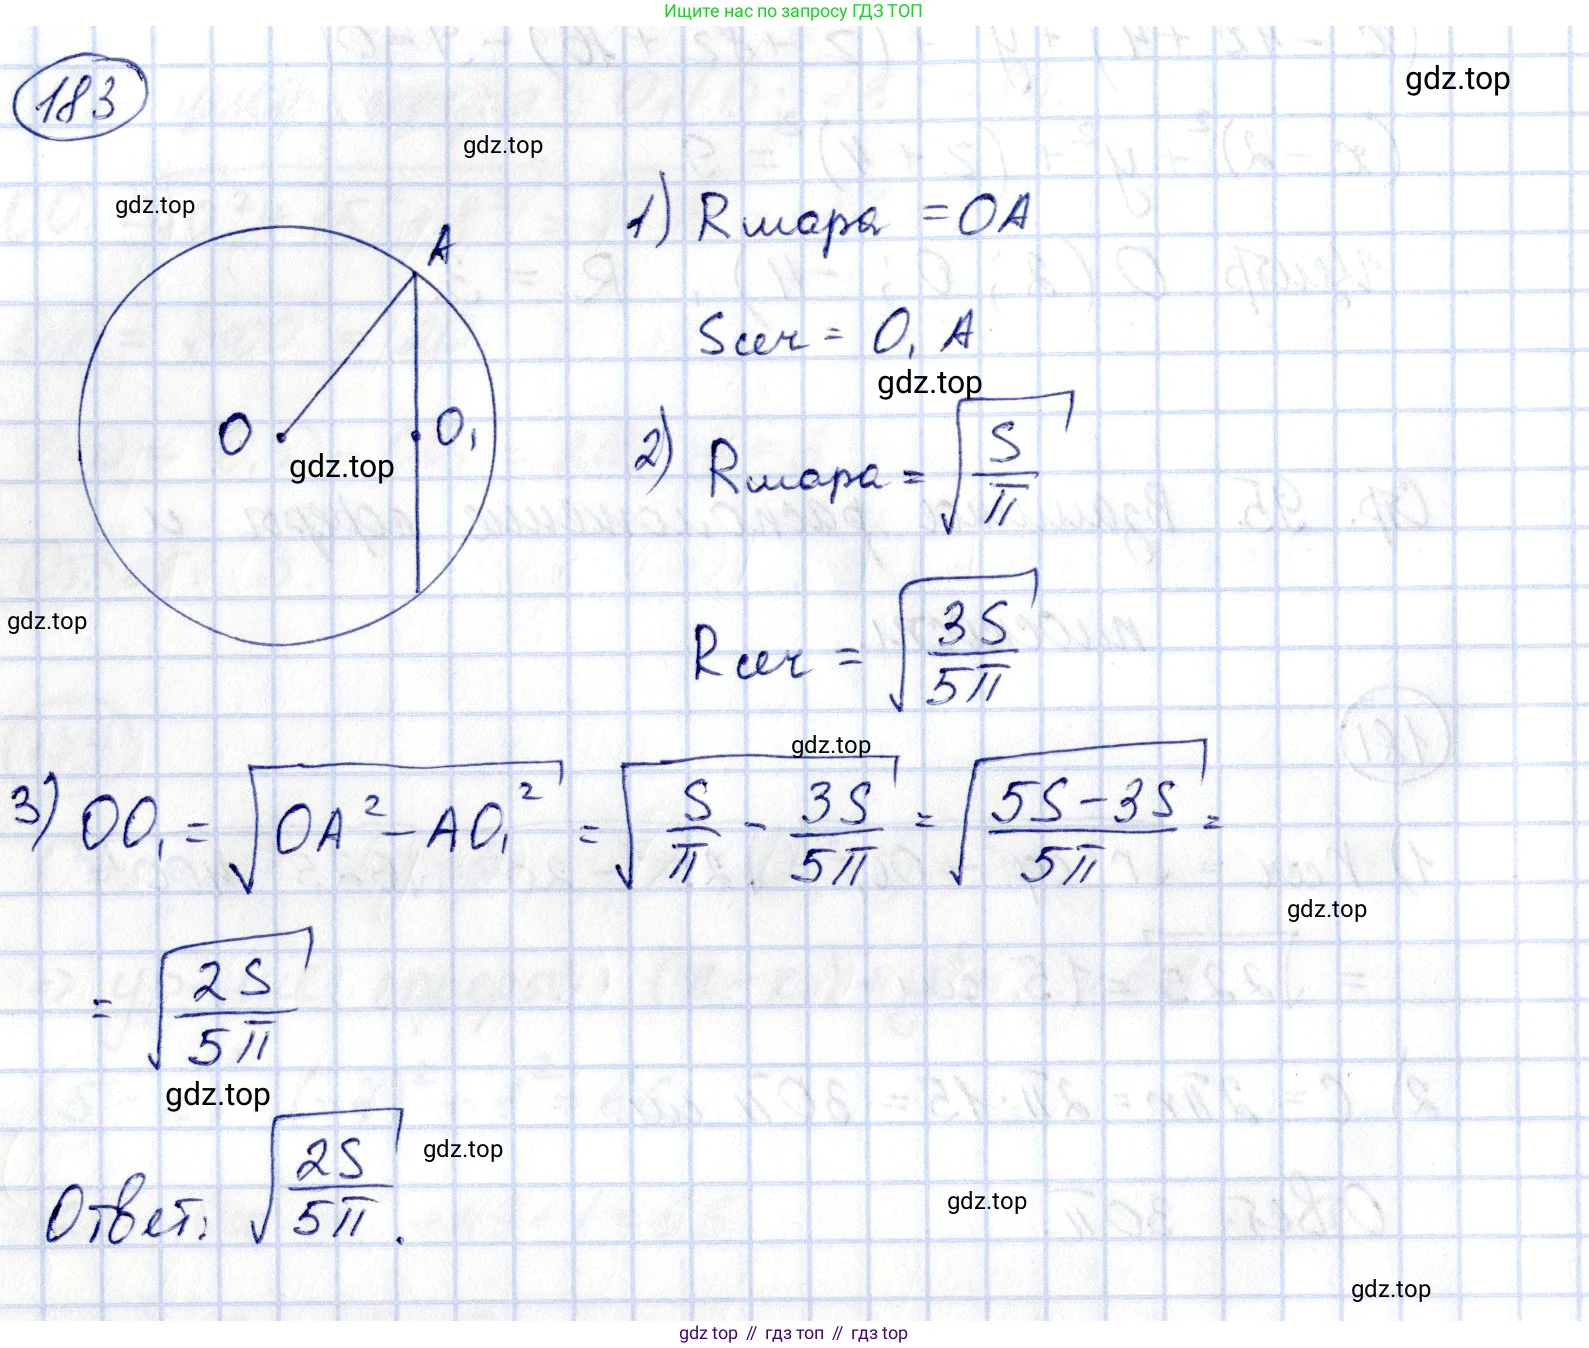 Ищите нас по запросу ГДЗ ТОП
183
gdz.top
gdz.top
gdz.top
A
O
O₁
gdz.top
gdz.top
1) Rшара = OA
Sсеч = O₁A
gdz.top
2) Rшара = √(S/π)
Rсеч = √(3S/5π)
gdz.top
3) OO₁ = √(OA² - AO₁²) = √(S/π - 3S/5π) = √((5S-3S)/5π) =
gdz.top
= √(2S/5π)
gdz.top
Ответ: √(2S/5π).
gdz.top
gdz.top
gdz.top
gdz top // гдз топ // гдз top